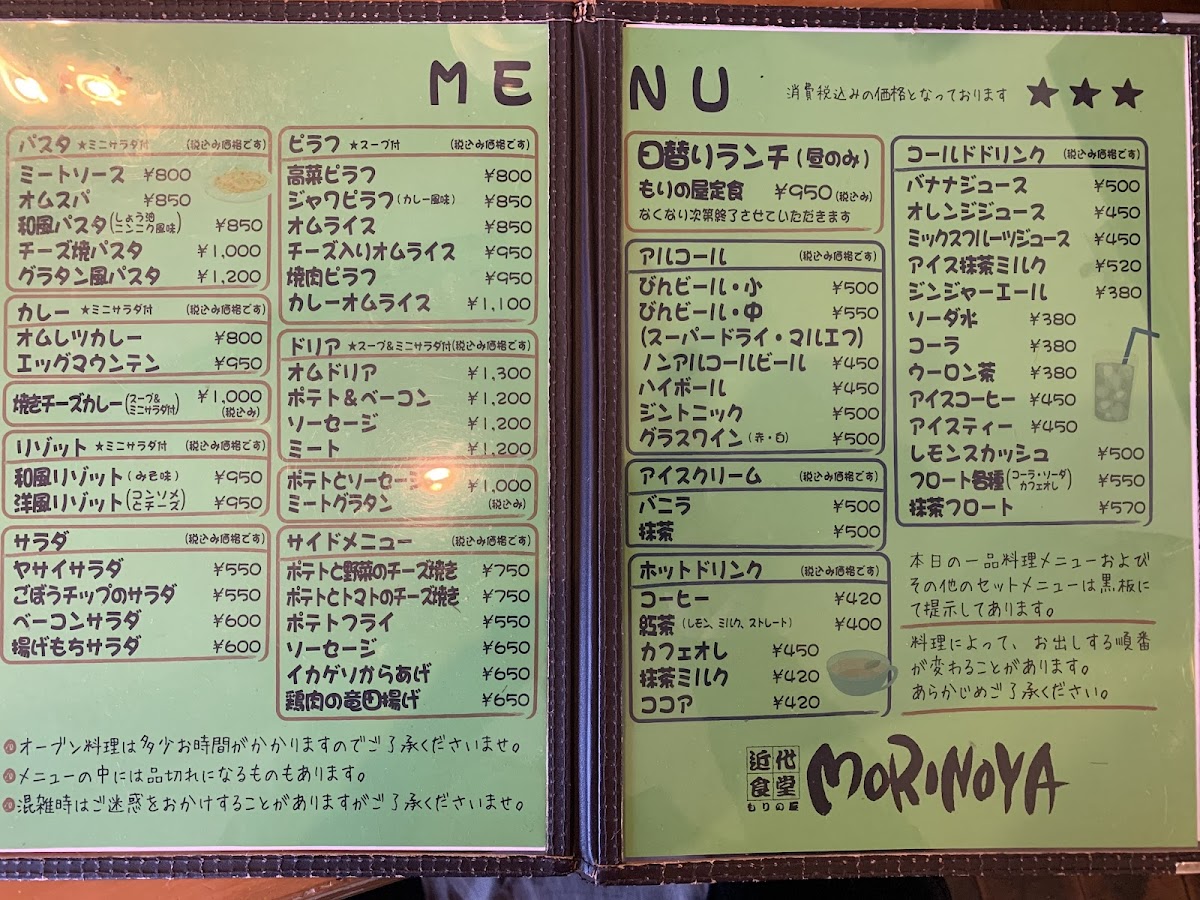 MENU
消費税込みの価格となっております ★★★
パスタ ★ミニサラダ付 (税込み価格です)
ミートソース ¥800
オムスパ ¥850
和風パスタ(しょう油ニンニク風味) ¥850
チーズ焼パスタ ¥1,000
グラタン風パスタ ¥1,200
カレー ★ミニサラダ付 (税込み価格です)
オムレツカレー ¥800
エッグマウンテン ¥950
焼きチーズカレー(スープ&ミニサラダ付) ¥1,000
(税込み)
リゾット ★ミニサラダ付 (税込み価格です)
和風リゾット(みそ味) ¥950
洋風リゾット(コンソメとチーズ) ¥950
サラダ (税込み価格です)
ヤサイサラダ ¥550
ごぼうチップのサラダ ¥550
ベーコンサラダ ¥600
揚げもちサラダ ¥600
ピラフ ★スープ付 (税込み価格です)
高菜ピラフ ¥800
ジャワピラフ(カレー風味) ¥850
オムライス ¥850
チーズ入りオムライス ¥950
焼肉ピラフ ¥950
カレーオムライス ¥1,100
ドリア ★スープ&ミニサラダ付(税込み価格です)
オムドリア ¥1,300
ポテト&ベーコン ¥1,200
ソーセージ ¥1,200
ミート ¥1,200
ポテトとソーセージ ¥1,000
ミートグラタン (税込み)
サイドメニュー (税込み価格です)
ポテトと野菜のチーズ焼き ¥750
ポテトとトマトのチーズ焼き ¥750
ポテトフライ ¥550
ソーセージ ¥650
イカゲソからあげ ¥650
鶏肉の竜田揚げ ¥650
●オーブン料理は多少お時間がかかりますのでご了承くださいませ。
●メニューの中には品切れになるものもあります。
●混雑時はご迷惑をおかけすることがありますがご了承くださいませ。
日替りランチ(昼のみ)
もりの屋定食 ¥950(税込み)
なくなり次第終了させていただきます
アルコール (税込み価格です)
びんビール・小 ¥500
びんビール・中 ¥550
(スーパードライ・マルエフ)
ノンアルコールビール ¥450
ハイボール ¥450
ジントニック ¥500
グラスワイン(赤・白) ¥500
アイスクリーム (税込み価格です)
バニラ ¥500
抹茶 ¥500
ホットドリンク (税込み価格です)
コーヒー ¥420
紅茶(レモン、ミルク、ストレート) ¥400
カフェオレ ¥450
抹茶ミルク ¥420
ココア ¥420
コールドドリンク (税込み価格です)
バナナジュース ¥500
オレンジジュース ¥450
ミックスフルーツジュース ¥450
アイス抹茶ミルク ¥520
ジンジャーエール ¥380
ソーダ水 ¥380
コーラ ¥380
ウーロン茶 ¥380
アイスコーヒー ¥450
アイスティー ¥450
レモンスカッシュ ¥500
フロート各種(コーラ・ソーダ カフェオレ) ¥550
抹茶フロート ¥570
本日の一品料理メニューおよび
その他のセットメニューは黒板に
て提示してあります。
料理によって、お出しする順番
が変わることがあります。
あらかじめご了承ください。
近代食堂
もりの屋
MORINOYA